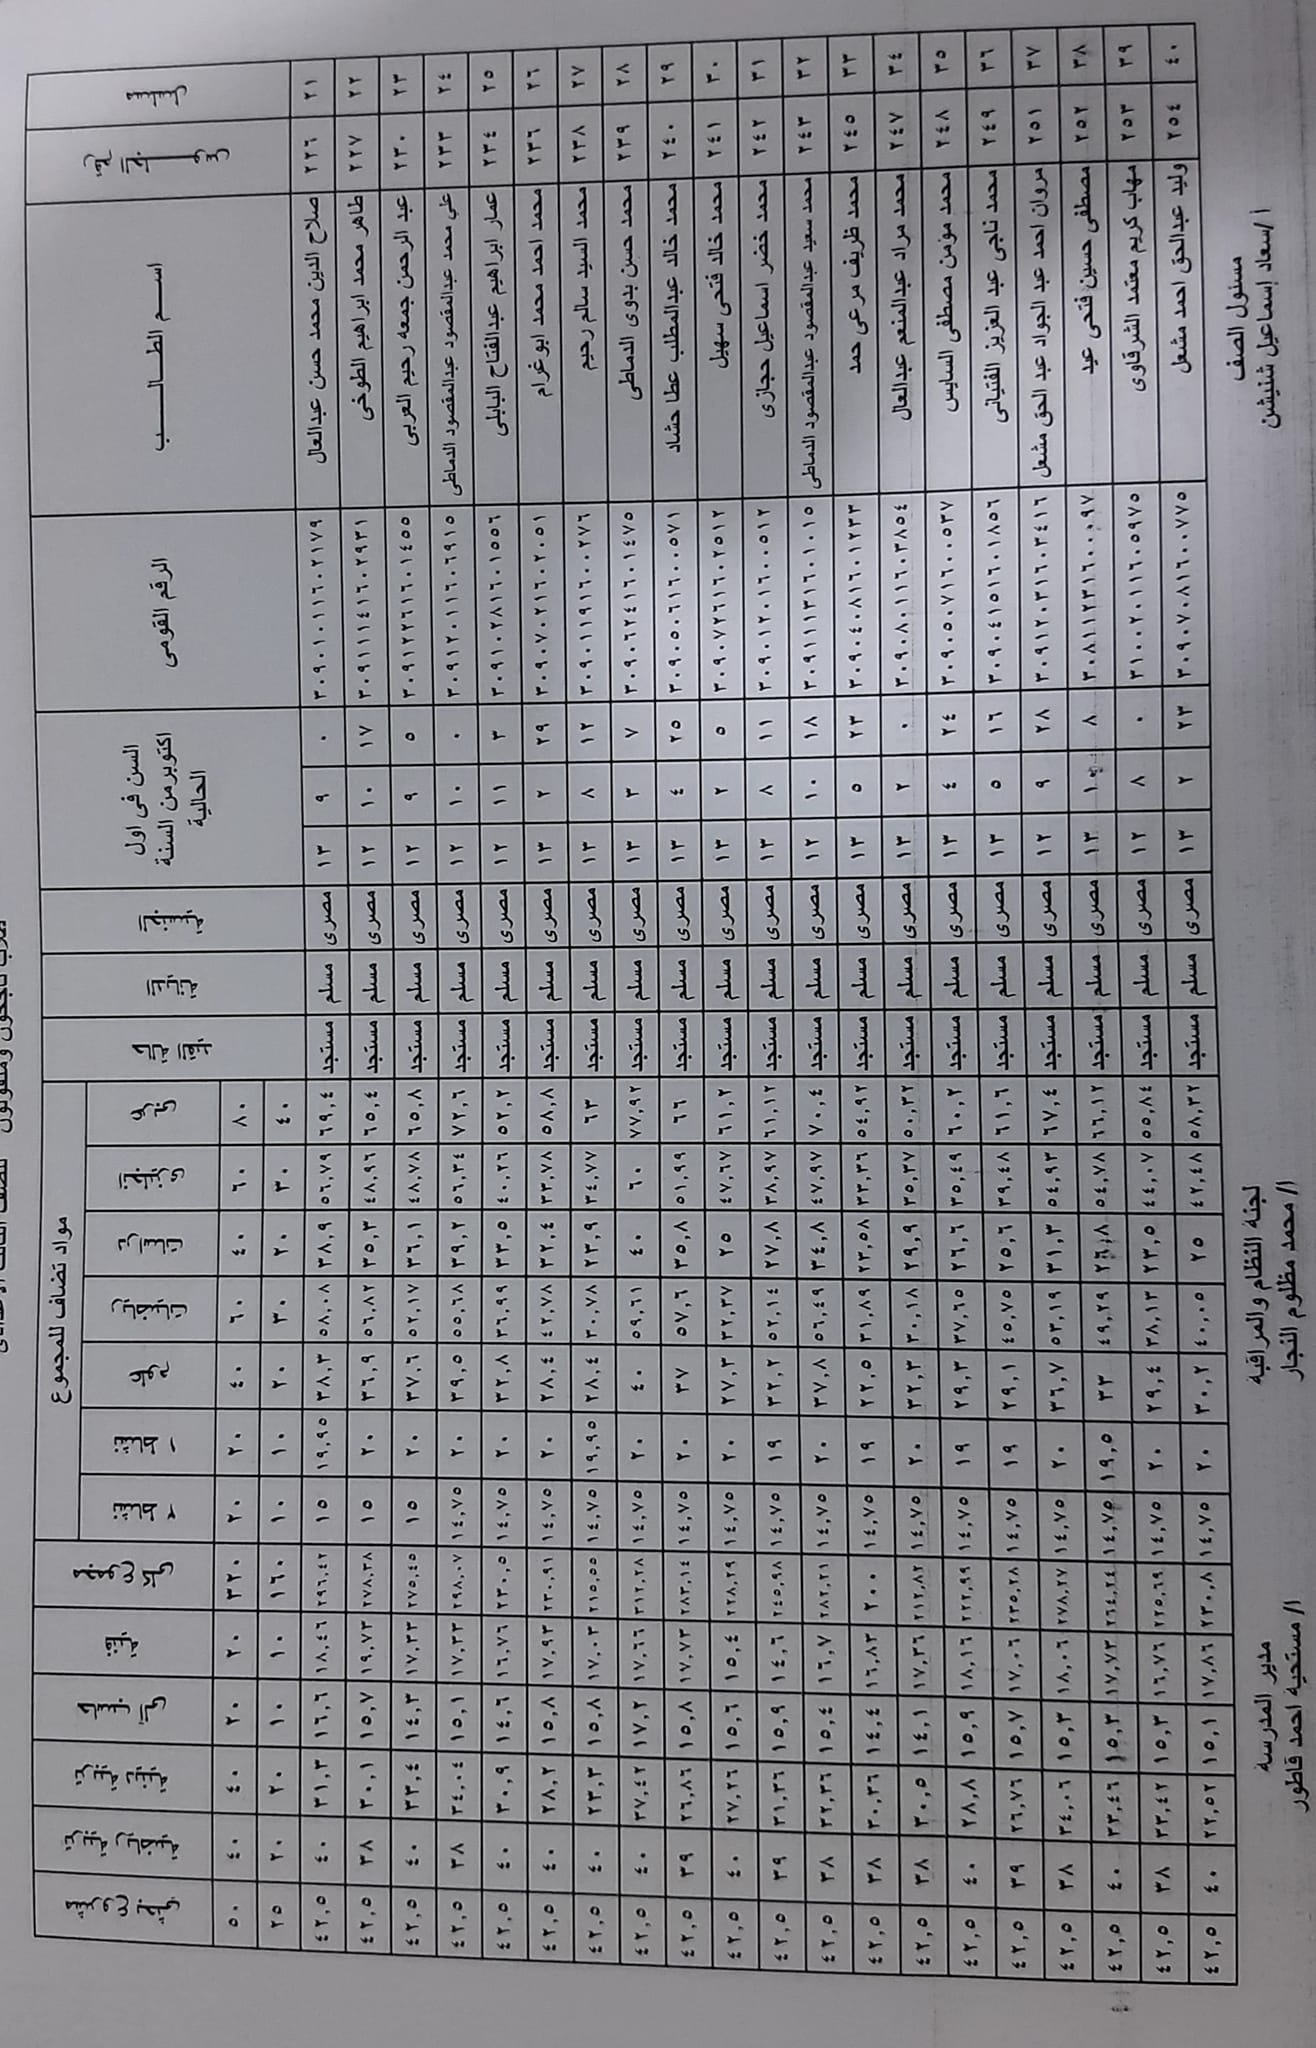 مسلسل	رقم الجلوس	اســـم الطـــالـــــب	الرقم القومى	السن فى اول اكتوبر من السنة الحالية	الجنسية	الديانة	حالة القيد	مواد تضاف للمجموع
عربى	انجليزى	دراسات	رياضيات	علوم	نشاط ١	نشاط ٢	المجموع الكلى	فنية	حاسب الى	تربية دينية	تربية رياضية
٨٠	٦٠	٤٠	٦٠	٤٠	٢٠	٢٠	٣٢٠	٢٠	٢٠	٤٠	٤٠	٥٠
٤٠	٣٠	٢٠	٣٠	٢٠	١٠	١٠	١٦٠	١٠	١٠	٢٠	٢٠	٢٥
٢١	٢٢٦	صلاح الدين محمد حسن عبدالعال	٣٠٩٠١٠١١٦٠٢١٧٩	٠	٩	١٣	مصرى	مسلم	مستجد	٦٩,٤	٥٦,٧٩	٣٨,٩	٥٨,٠٨	٣٨,٣	١٩,٩٥	١٥	٢٩٦,٤٢	١٨,٤٦	١٦,٦	٣١,٣	٤٠	٤٢,٥
٢٢	٢٢٧	طاهر محمد ابراهيم الطوخى	٣٠٩١١١٤١٦٠٢٩٣١	١٧	١٠	١٢	مصرى	مسلم	مستجد	٦٥,٤	٤٨,٩٦	٣٥,٣	٥٦,٨٢	٣٦,٩	٢٠	١٥	٢٧٨,٣٨	١٩,٧٣	١٥,٧	٣٠,١	٣٨	٤٢,٥
٢٣	٢٣٠	عبد الرحمن جمعه رحيم العربى	٣٠٩١٢٢٦١٦٠١٤٥٥	٥	٩	١٢	مصرى	مسلم	مستجد	٦٥,٨	٤٨,٧٨	٣٦,١	٥٢,١٧	٣٧,٦	٢٠	١٥	٢٧٥,٤٥	١٧,٣٣	١٤,٣	٣٣,٤	٤٠	٤٢,٥
٢٤	٢٣٣	علي محمد عبدالمقصود عبدالمقصود الدماطى	٣٠٩١٢٠١١٦٠٦٩١٥	٠	١٠	١٢	مصرى	مسلم	مستجد	٧٢,٦	٥٦,٣٤	٣٩,٢	٥٥,٦٨	٣٩,٥	٢٠	١٤,٧٥	٢٩٨,٠٧	١٧,٣٣	١٥,١	٣٤,٠٤	٣٨	٤٢,٥
٢٥	٢٣٤	عمار ابراهيم عبدالفتاح البابلى	٣٠٩١٠٢٨١٦٠١٥٥٦	٣	١١	١٢	مصرى	مسلم	مستجد	٥٢,٢	٤٠,٢٦	٣٣,٥	٣٦,٩٩	٣٢,٨	٢٠	١٤,٧٥	٢٣٠,٥	١٦,٧٦	١٤,٦	٣٠,٩	٤٠	٤٢,٥
٢٦	٢٣٦	محمد احمد محمد ابوغرام	٣٠٩٠٧٠٢١٦٠٢٠٥١	٢٩	٢	١٣	مصرى	مسلم	مستجد	٥٨,٨	٣٣,٧٨	٣٢,٤	٤٢,٧٨	٢٨,٤	٢٠	١٤,٧٥	٢٣٠,٩١	١٧,٩٣	١٥,٨	٢٨,٢	٤٠	٤٢,٥
٢٧	٢٣٨	محمد السيد سالم رحيم	٣٠٩٠١١٩١٦٠٠٢٧٦	١٢	٨	١٣	مصرى	مسلم	مستجد	٦٣	٣٤,٧٧	٢٣,٩	٣٠,٧٨	٢٨,٤	١٩,٩٥	١٤,٧٥	٢١٥,٥٥	١٧,٠٣	١٥,٨	٢٣,٣	٤٠	٤٢,٥
٢٨	٢٣٩	محمد حسن بدوى الدماطى	٣٠٩٠٦٢٤١٦٠١٤٧٥	٧	٣	١٣	مصرى	مسلم	مستجد	٧٧,٩٢	٦٠	٤٠	٥٩,٦١	٤٠	٢٠	١٤,٧٥	٣١٢,٢٨	١٧,٦٦	١٧,٢	٣٧,٤٢	٤٠	٤٢,٥
٢٩	٢٤٠	محمد خالد عبدالمطلب عطا حشاد	٣٠٩٠٥٠٦١٦٠٠٥٧١	٢٥	٤	١٣	مصرى	مسلم	مستجد	٦٦	٥١,٩٩	٣٥,٨	٥٧,٦	٣٧	٢٠	١٤,٧٥	٢٨٣,١٤	١٧,٧٣	١٥,٨	٢٦,٨٦	٣٩	٤٢,٥
٣٠	٢٤١	محمد خالد فتحى سهيل	٣٠٩٠٧٢٦١٦٠٢٥١٢	٥	٢	١٣	مصرى	مسلم	مستجد	٦١,٢	٤٧,٦٧	٢٥	٣٢,٣٧	٢٧,٣	٢٠	١٤,٧٥	٢٢٨,٢٩	١٥,٤	١٥,٦	٢٧,٢٦	٤٠	٤٢,٥
٣١	٢٤٢	محمد خضر اسماعيل حجازى	٣٠٩٠١٢٠١٦٠٠٥١٢	١١	٨	١٣	مصرى	مسلم	مستجد	٦١,١٢	٣٨,٩٧	٢٧,٨	٥٢,١٤	٣٢,٢	١٩	١٤,٧٥	٢٤٥,٩٨	١٤,٦	١٥,٩	٣١,٣٦	٣٩	٤٢,٥
٣٢	٢٤٣	محمد سعيد عبدالمقصود عبدالمقصود الدماطى	٣٠٩١١١٣١٦٠١٠١٥	١٨	١٠	١٢	مصرى	مسلم	مستجد	٧٠,٤	٤٧,٩٧	٣٤,٨	٥٦,٤٩	٣٧,٨	٢٠	١٤,٧٥	٢٨٢,٢١	١٦,٧	١٥,٤	٣٢,٣٦	٣٨	٤٢,٥
٣٣	٢٤٥	محمد ظريف مرعى حمد	٣٠٩٠٤٠٨١٦٠١٢٣٣	٢٣	٥	١٣	مصرى	مسلم	مستجد	٥٤,٩٢	٣٣,٣٦	٢٣,٥٨	٣١,٨٩	٢٢,٥	١٩	١٤,٧٥	٢٠٠	١٦,٨٣	١٤,٤	٢٠,٣٦	٣٨	٤٢,٥
٣٤	٢٤٧	محمد مراد عبدالمنعم عبدالعال	٣٠٩٠٨٠١١١٦٠٣٨٥٤	٠	٢	١٣	مصرى	مسلم	مستجد	٥٠,٣٢	٣٥,٣٧	٢٩,٩	٣٠,١٨	٣٢,٣	٢٠	١٤,٧٥	٢١٢,٨٢	١٧,٣٦	١٤,١	٣٠,٥	٣٨	٤٢,٥
٣٥	٢٤٨	محمد مؤمن مصطفى السايس	٣٠٩٠٥٠٧١٦٠٠٥٣٧	٢٤	٤	١٣	مصرى	مسلم	مستجد	٦٠,٢	٣٥,٤٩	٢٦,٦	٣٧,٦٥	٢٩,٣	١٩	١٤,٧٥	٢٢٢,٩٩	١٨,١٦	١٥,٩	٢٨,٨	٤٠	٤٢,٥
٣٦	٢٤٩	محمد ناجى عبد العزيز الفتيانى	٣٠٩٠٤١٥١٦٠١٨٥٦	١٦	٥	١٣	مصرى	مسلم	مستجد	٦١,٦	٣٩,٤٨	٢٥,٦	٤٥,٧٥	٢٩,١	١٩	١٤,٧٥	٢٣٥,٢٨	١٧,٠٦	١٥,٧	٢٦,٧٦	٣٩	٤٢,٥
٣٧	٢٥١	مروان احمد عبد الجواد عبد الحق مشعل	٣٠٩١٢٠٣١٦٠٣٤١٦	٢٨	٩	١٢	مصرى	مسلم	مستجد	٦٧,٤	٥٤,٩٣	٣١,٣	٥٣,١٩	٣٦,٧	٢٠	١٤,٧٥	٢٧٨,٢٧	١٨,٠٦	١٥,٣	٣٤,٠٦	٣٨	٤٢,٥
٣٨	٢٥٢	مصطفى حسين فتحى عيد	٣٠٨١١٢٣١٦٠٠٠٩٧	٨	١٠	١٣	مصرى	مسلم	مستجد	٦٦,١٢	٥٤,٧٨	٢٦,٨	٤٩,٢٩	٣٣	١٩,٥	١٤,٧٥	٢٦٤,٢٤	١٧,٧٣	١٥,٣	٣٣,٤٦	٤٠	٤٢,٥
٣٩	٢٥٣	مهاب كريم معتمد الشرقاوى	٣١٠٠٢٠١١٦٠٥٩٧٥	٠	٨	١٢	مصرى	مسلم	مستجد	٥٥,٨٤	٤٤,٠٧	٢٣,٥	٣٨,١٣	٢٩,٤	٢٠	١٤,٧٥	٢٢٥,٦٩	١٦,٧٦	١٥,٣	٣٣,٤٢	٣٨	٤٢,٥
٤٠	٢٥٤	وليد عبدالحق احمد مشعل	٣٠٩٠٧٠٨١٦٠٠٧٧٥	٢٣	٢	١٣	مصرى	مسلم	مستجد	٥٨,٣٢	٤٢,٤٨	٢٥	٤٠,٠٥	٣٠,٢	٢٠	١٤,٧٥	٢٣٠,٨	١٧,٨٦	١٥,١	٢٢,٥٢	٤٠	٤٢,٥
مسئول الصف	لجنة النظام والمراقبه	مدير المدرسه
ا/سعاد إسماعيل شنيشن	ا/ محمد مظلوم النجار	ا/ مستحيه احمد فاطور